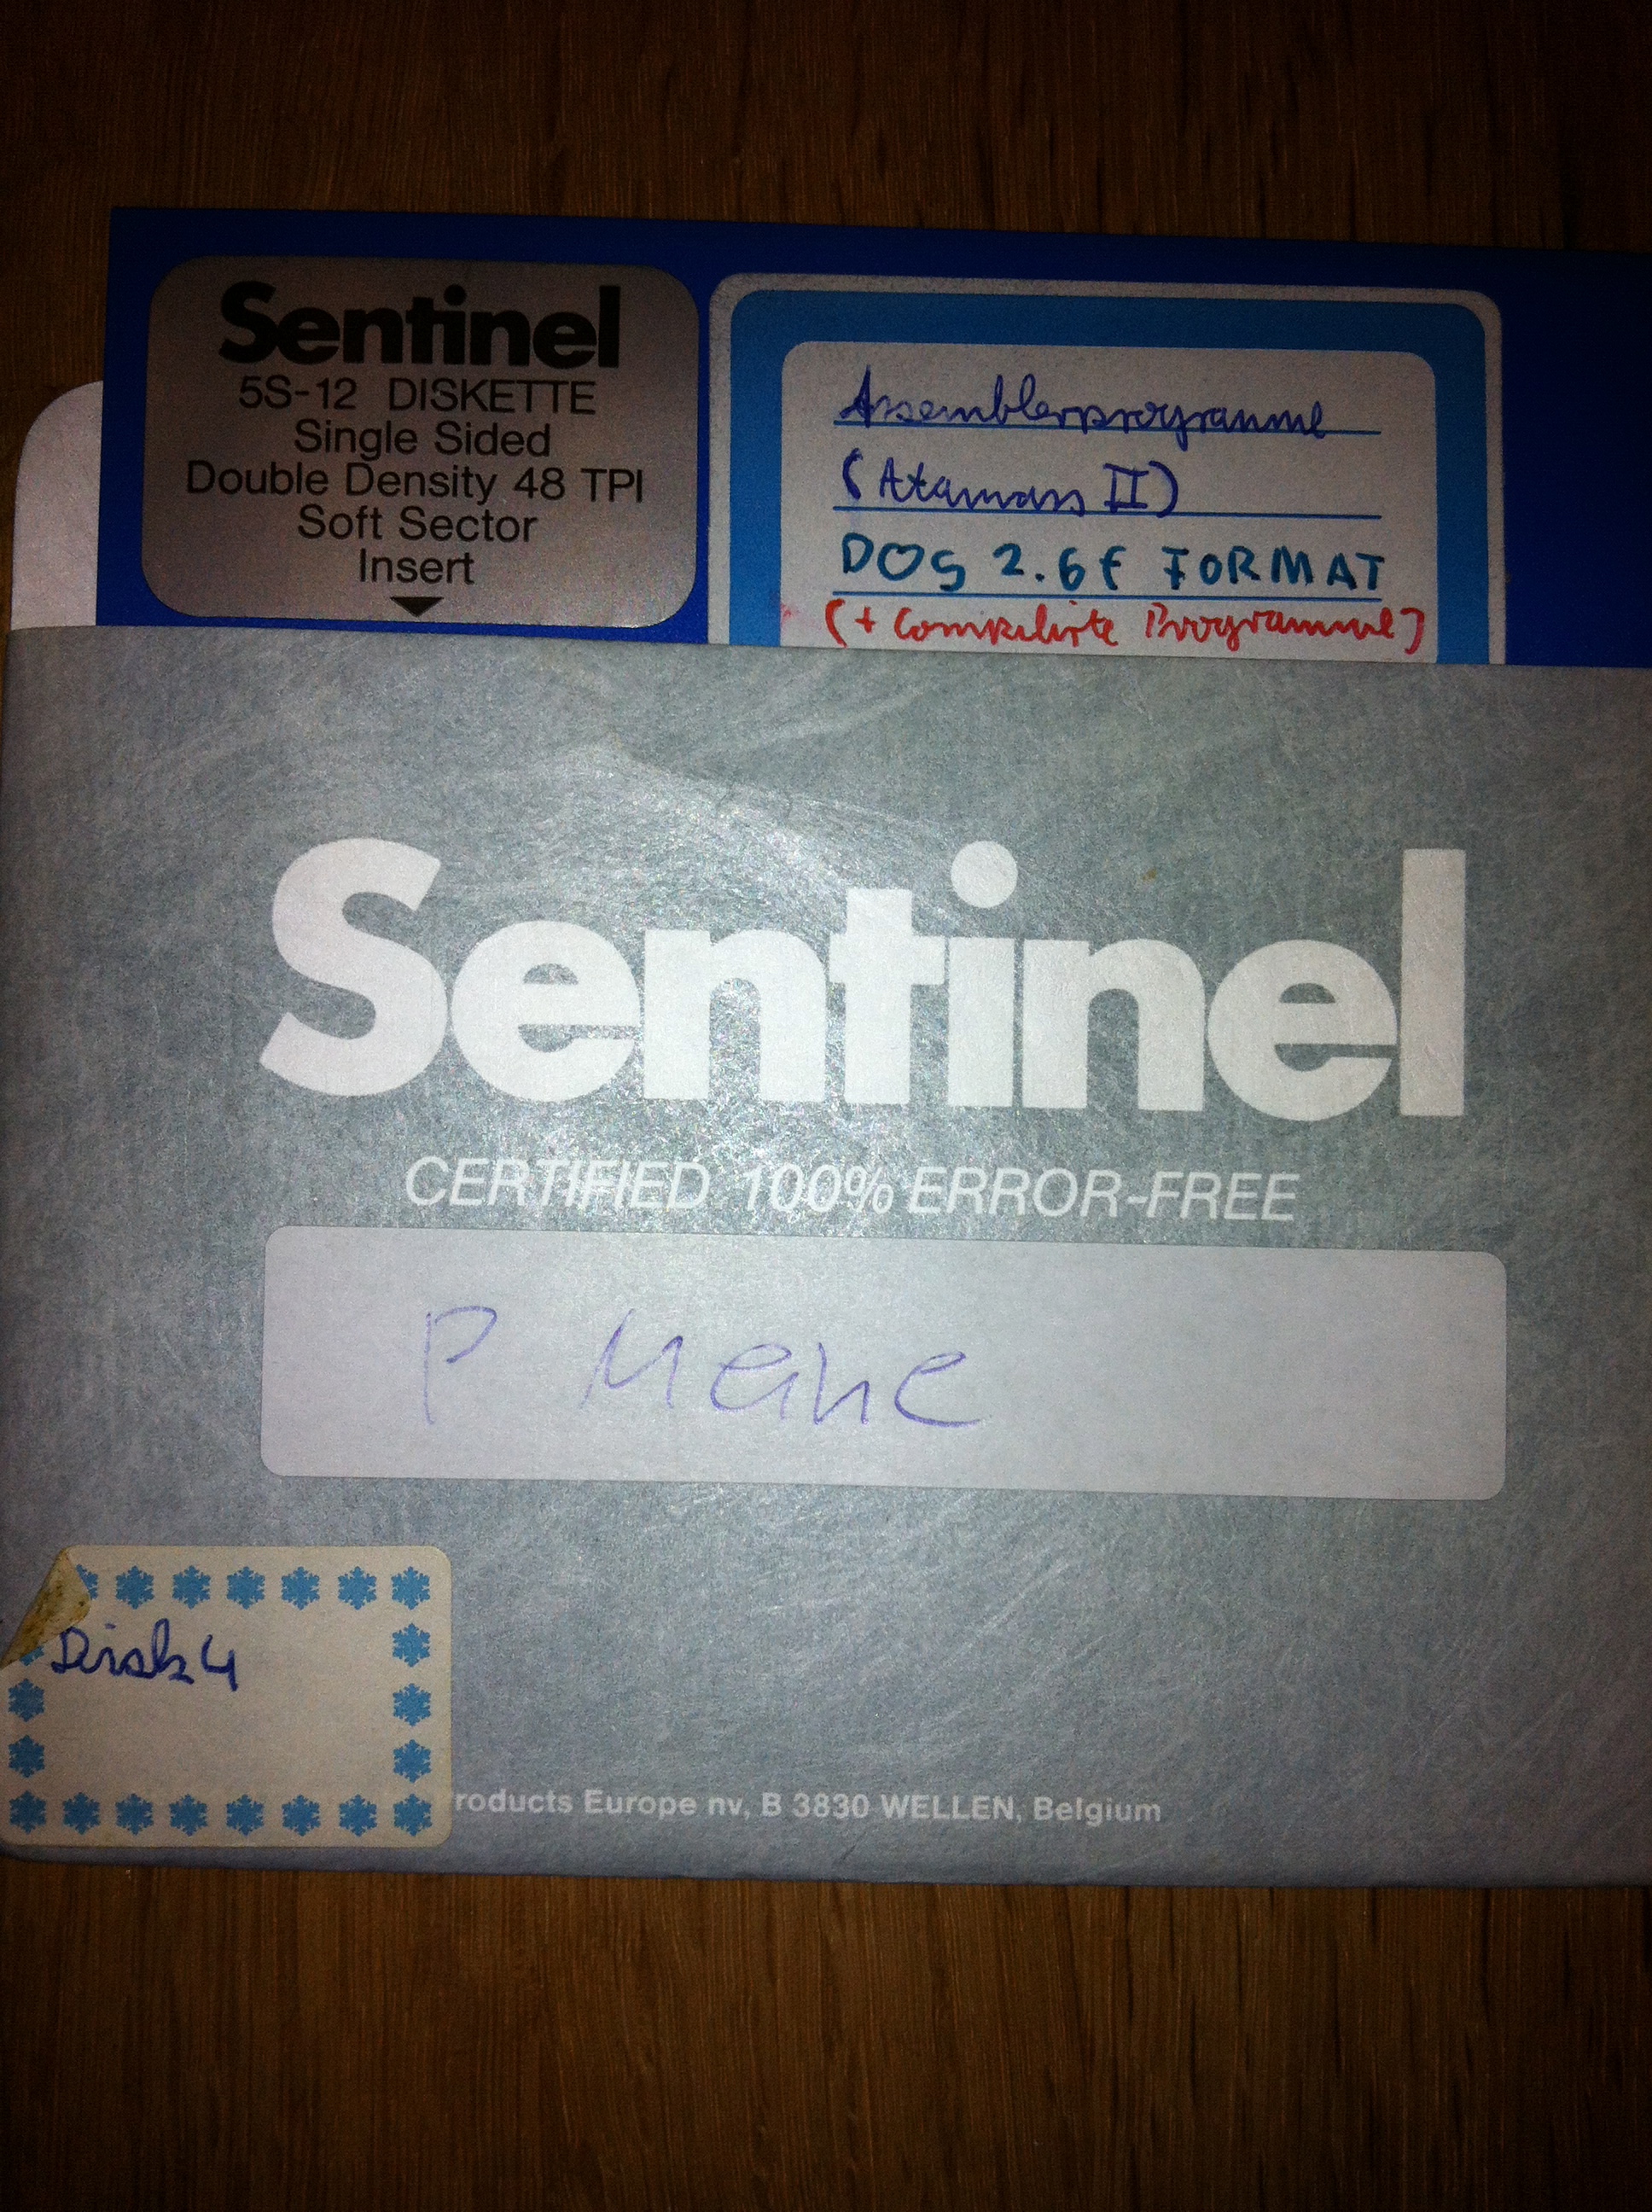 Sentinel
5S-12 DISKETTE
Single Sided
Double Density 48 TPI
Soft Sector
Insert
Assemblerprogramme
(Atamass II)
DOS 2.6f FORMAT
(+ Compilirte Programme)
Sentinel
CERTIFIED 100% ERROR-FREE
P Mene
Disk 4
roducts Europe nv, B 3830 WELLEN, Belgium